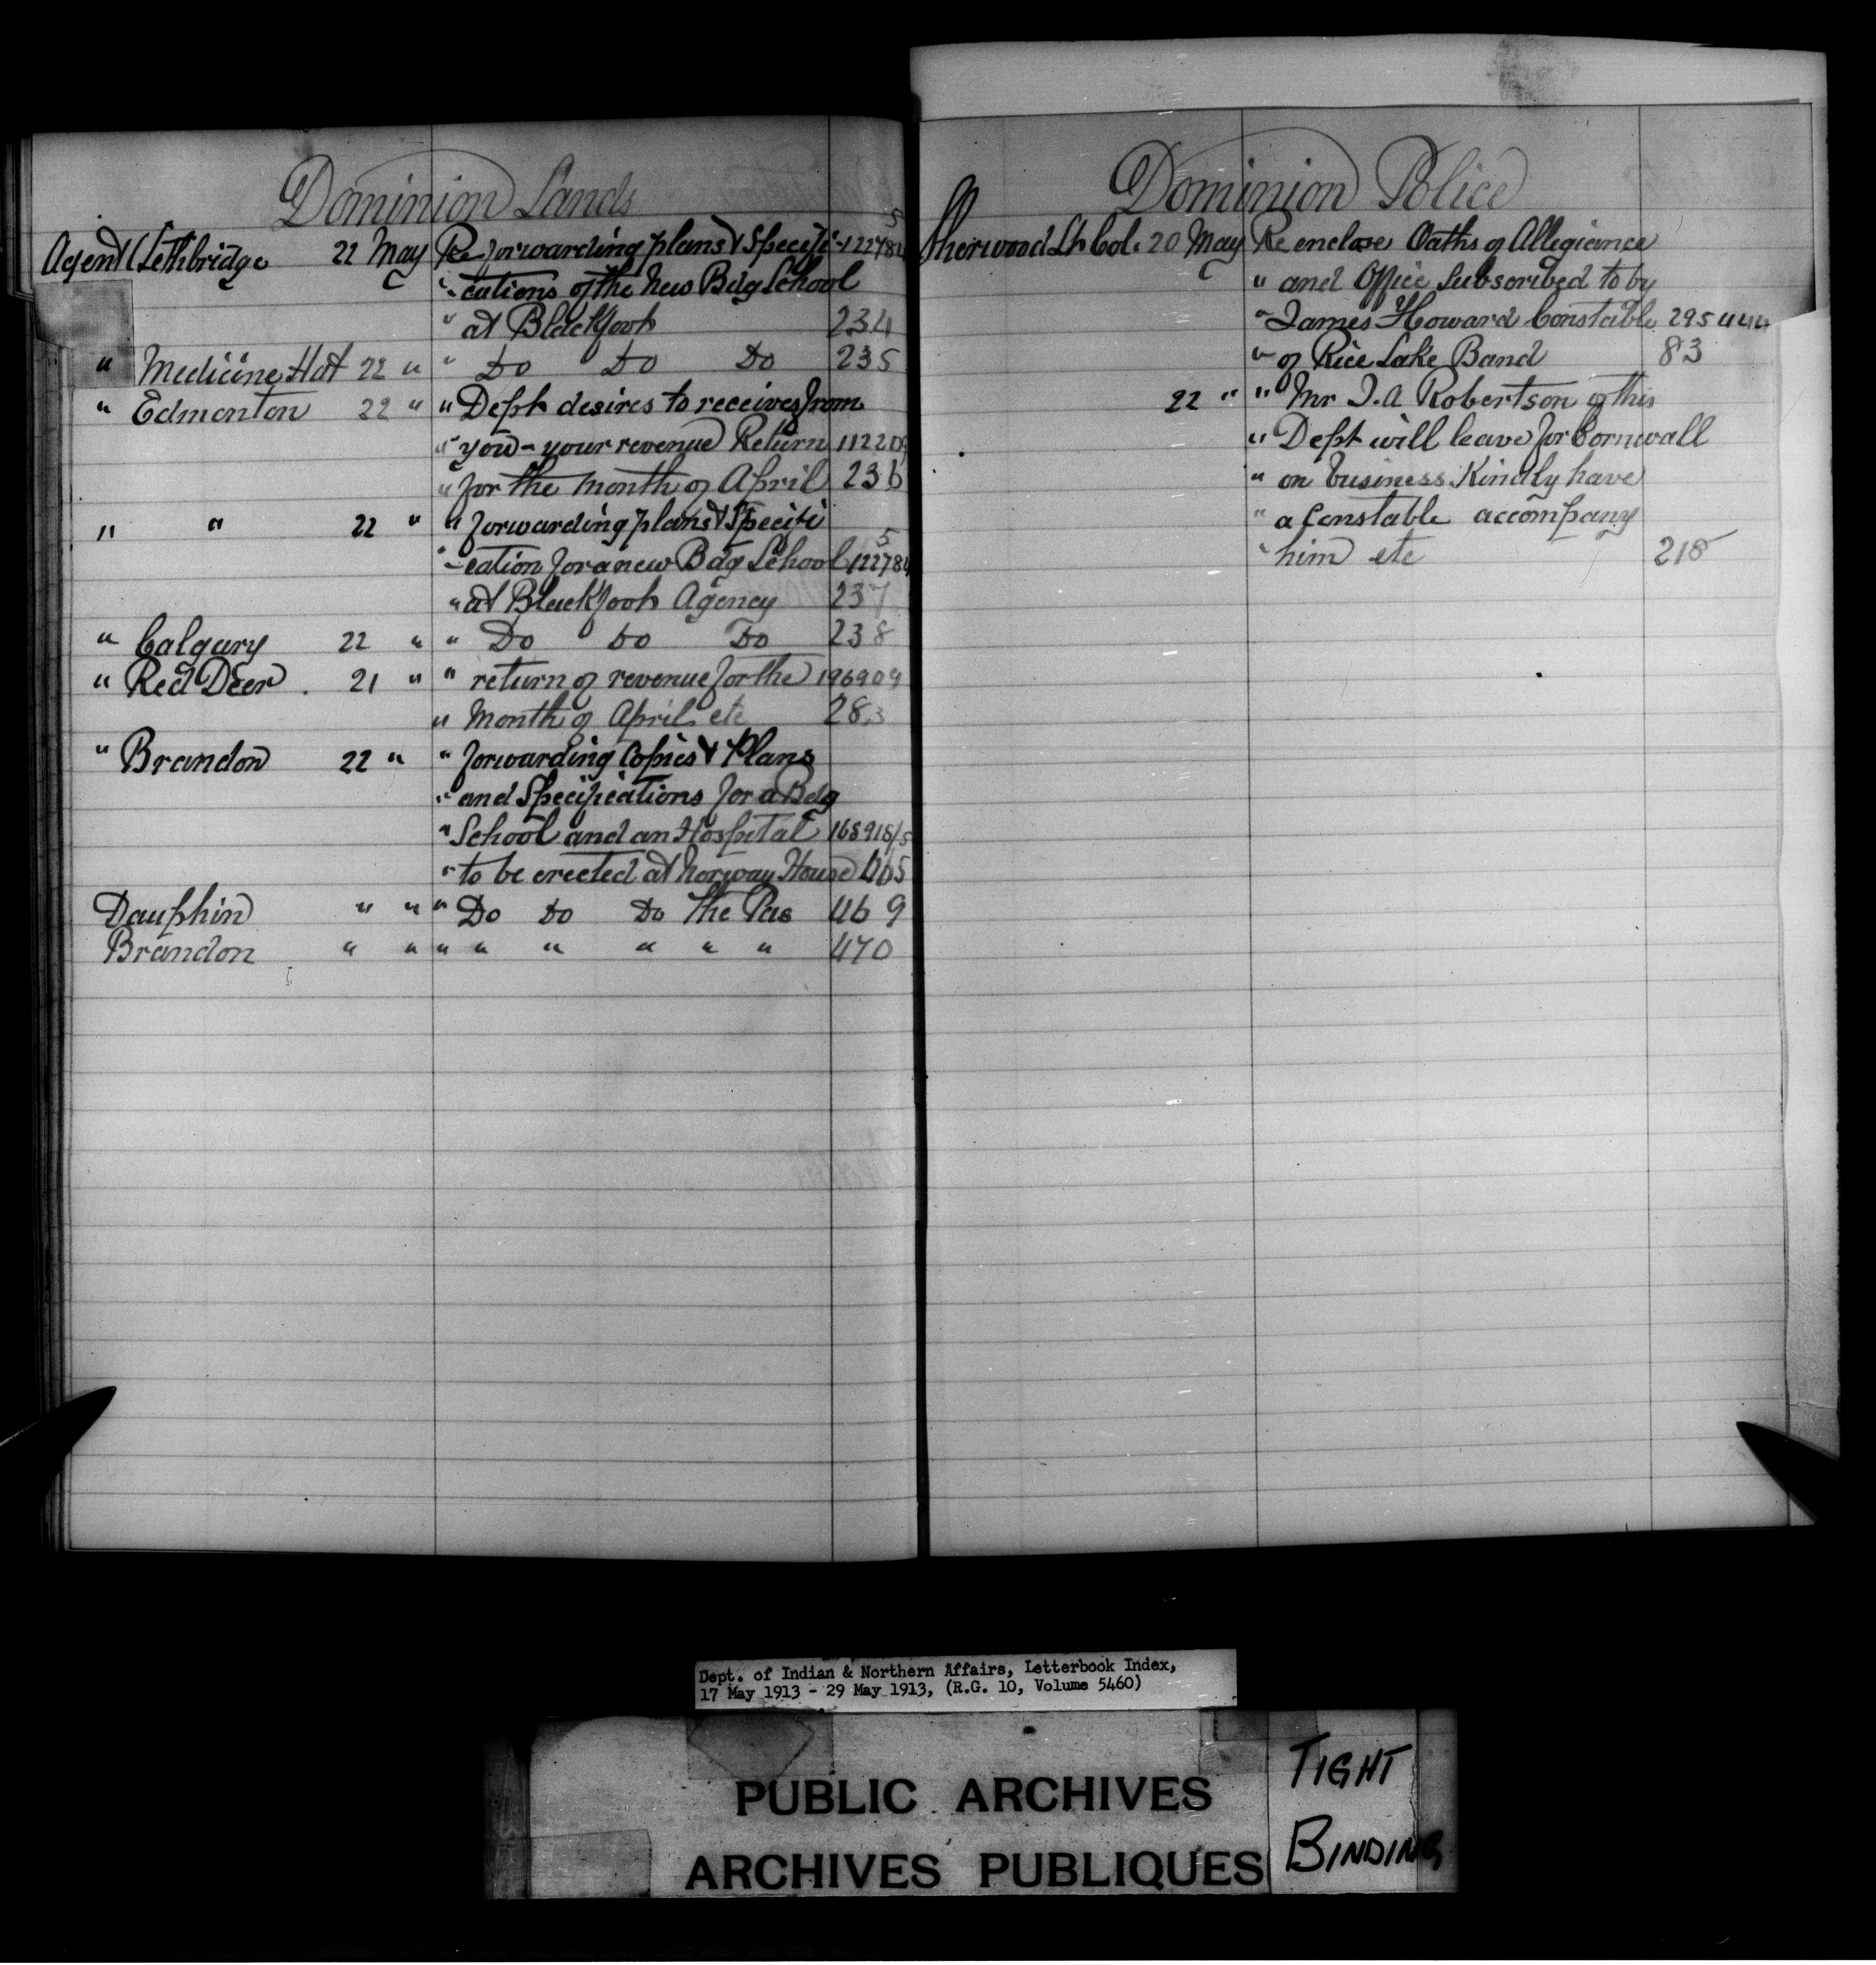 Dominion Lands
5
Agent (Lethbridge 22 May Re forwarding plans & Specifi- 122784
"-cations of the New Bdg School
" at Blackfoot 234
" Medicine Hat 22 " " Do Do Do 235
" Edmonton 22 " " Dept desires to receives from
" you - your revenue Return 112203
" for the month of April 236
" " 22 " " forwarding plans & Specifi
5
"-cation for a new Bdg School 122784
" at Blackfoot Agency 237
" Calgary 22 " " Do Do Do 238
" Red Deer. 21 " " return of revenue for the 196909
" Month of April etc 283
" Brandon 22 " " forwarding Copies & Plans
" and Specifications for a Bdg
" School and an Hospital 168918/5
" to be erected at Norway House 465
Dauphin " " " Do Do Do The Pas 469
Brandon " " " " " " " " 470
Dominion Police
Sherwood Lt Col. 20 May Re enclose Oaths of Allegiance
" and Office Subscribed to by
" James Howard Constable 295444
" of Rice Lake Band 83
22 " " Mr J.A Robertson of this
" Dept will leave for Cornwall
" on business. Kindly have
" a Constable accompany
" him etc 218
Dept. of Indian & Northern Affairs, Letterbook Index,
17 May 1913 - 29 May 1913, (R.G. 10, Volume 5460)
PUBLIC ARCHIVES
ARCHIVES PUBLIQUES
TIGHT
BINDING